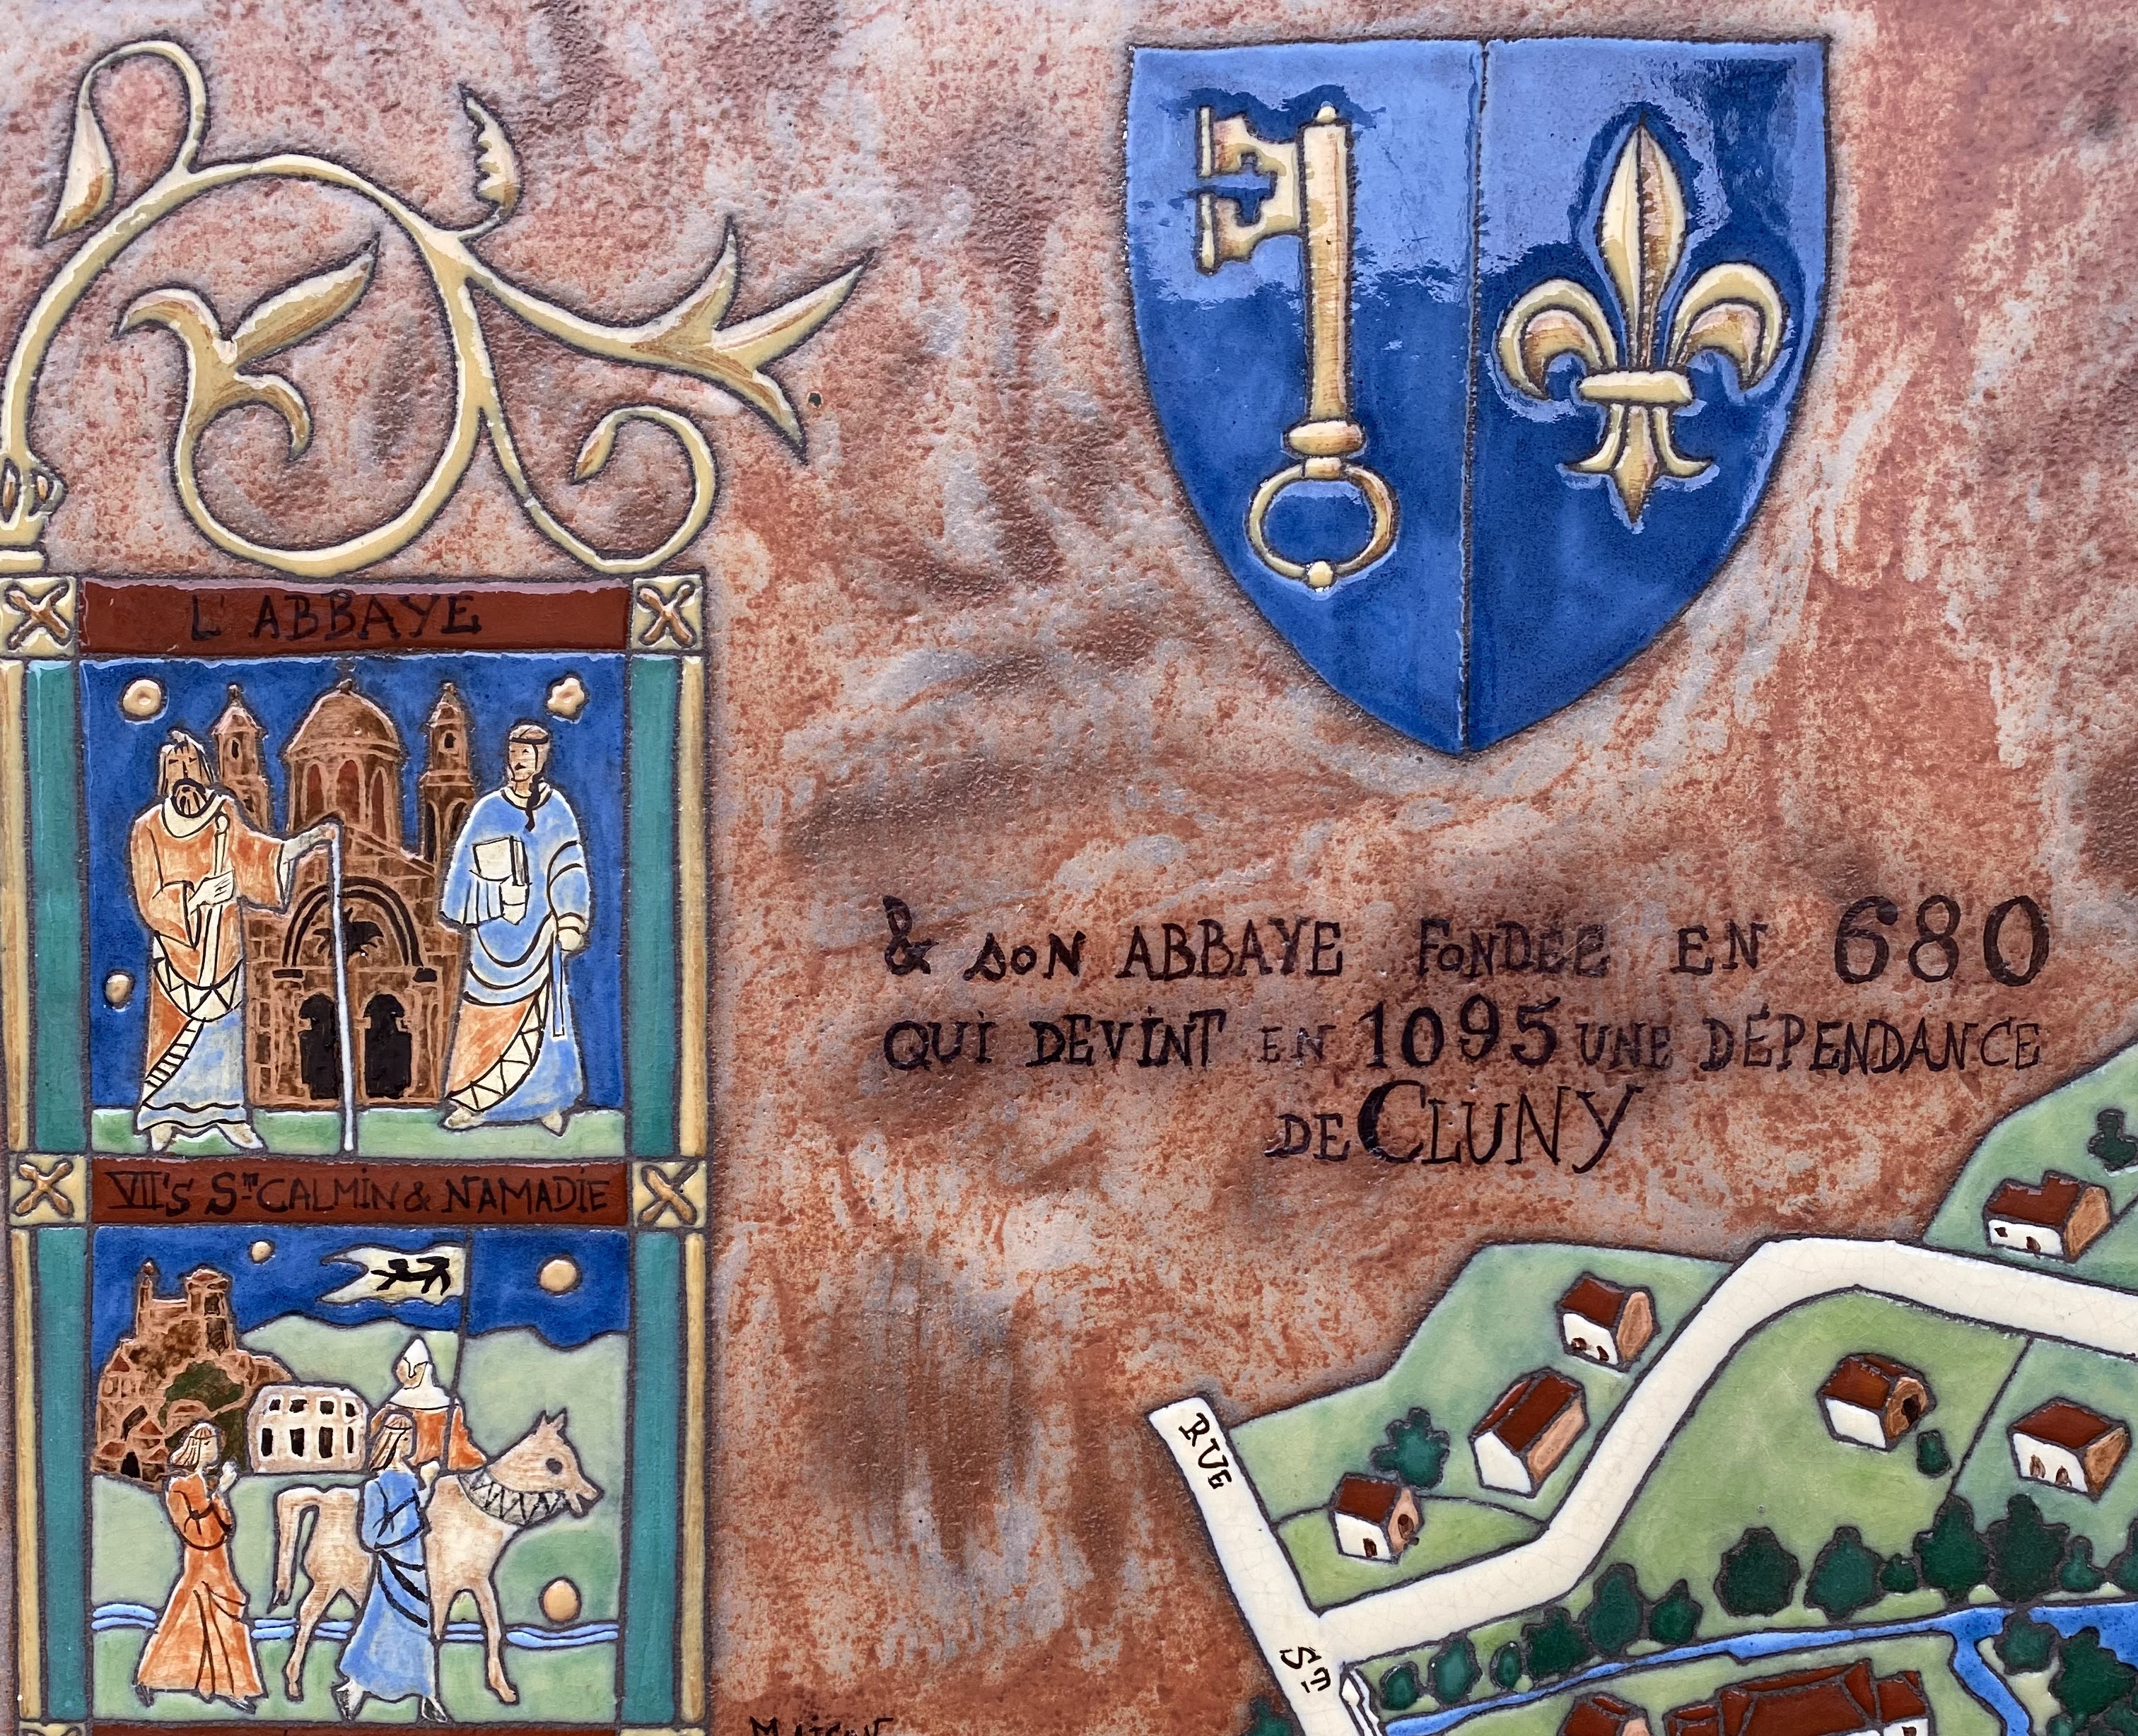 L'ABBAYE
& SON ABBAYE FONDÉE EN 680
QUI DEVINT EN 1095 UNE DÉPENDANCE
DE CLUNY
VII'S ST CALMIN & NAMADIE
RUE
ST